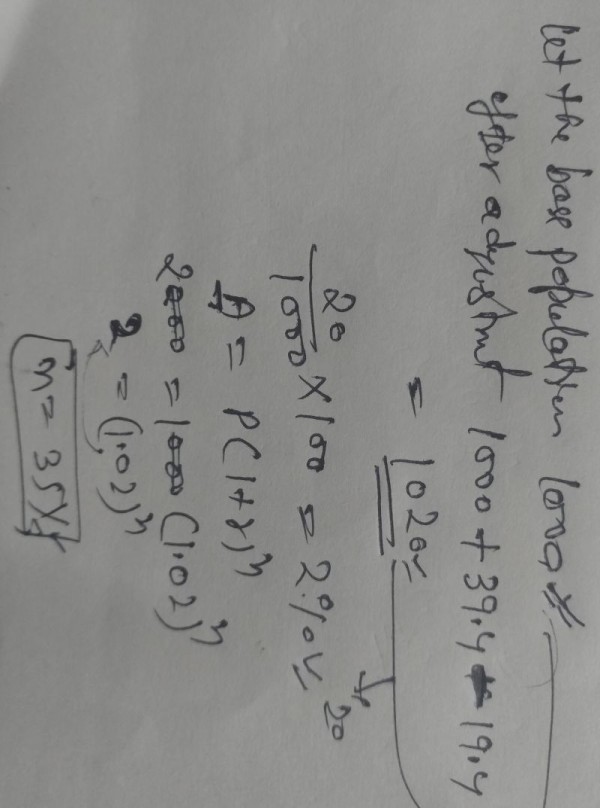 Let the base population 1000
after adjustmt 1000 + 39.4 - 19.4
= 1020
20
20/1000 × 100 = 2%
A = P(1+r)^n
2000 = 1000 (1.02)^n
2 = (1.02)^n
n = 35Yr